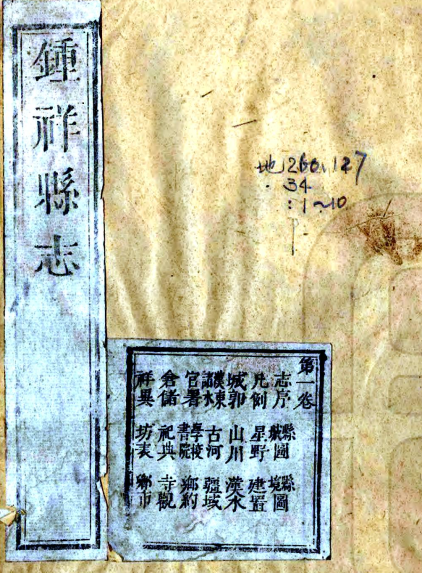 鍾祥縣志
地260.127
. 34
:1~10
第一卷
志序 縣圖 縣境圖
凡例 星野 建置
城郭 山川 漢水
漢東諸水 古河 疆域
官署 學校書院 鄉約
倉儲 祀典 寺觀
祥異 坊表 鄉市